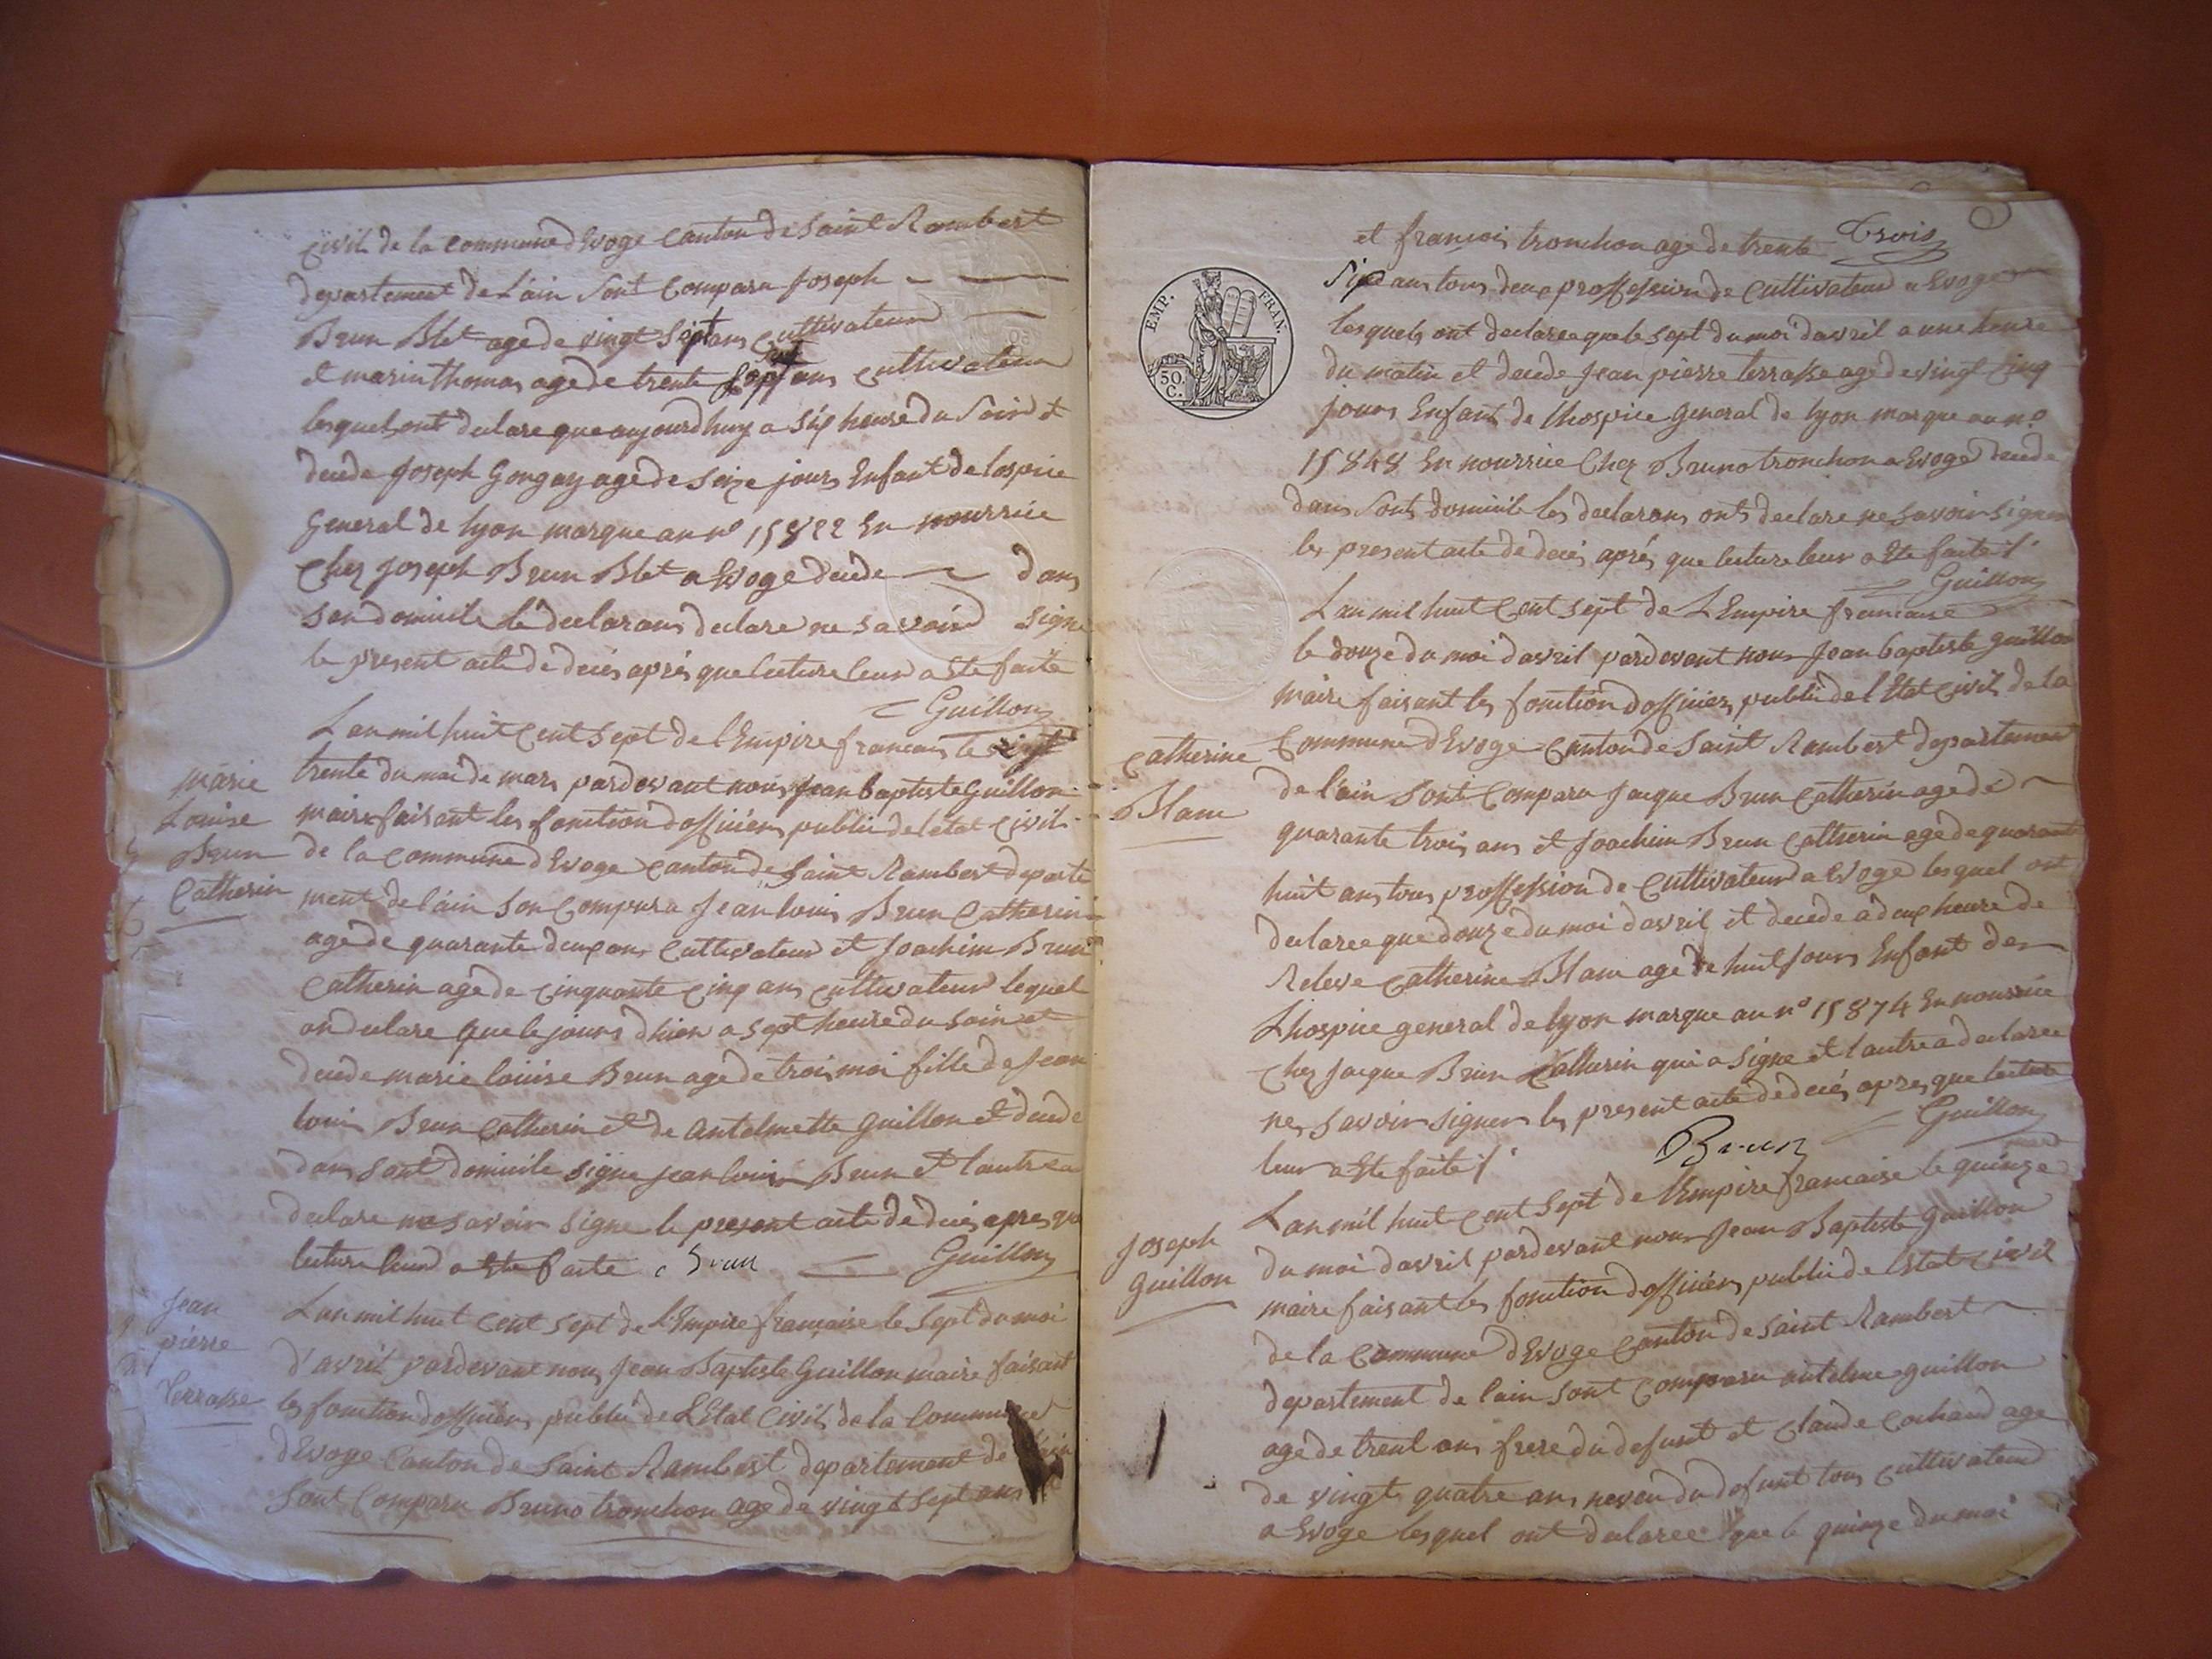 Civil de la commune d Evoge Canton de Saint Rambert
departement de L'ain Sont Comparu Joseph
Brun Blet age de vingt Sept ans Cultivateur
et marin thomas age de trente Sept ans cultivateur
lesquel ont declare que aujourdhuy a Six heure du Soir et
decede Joseph Gongay age de Seize jours Enfant de lospice
General de lyon marque au nº 15822 En nourrice
Chez Joseph Brun Blet a Evoge decede dans
son domicile le declarans declare ne savoir signe
le present acte de deces apres que lecture leur a Ete faite
Guillon
Lan mil huit Cent Sept de l'Empire francais le
trente du moi de mars pardevant nous Jean baptiste Guillon
maire faisant les fonction dofficiers public de l'état Civil
de la Commune d Evoge Canton de Saint Rambert departe
ment de lain Son Comparu Jean louis Brun Catherin
age de quarante deux ans Cultivateur et Joachim Brun
Catherin age de Cinquante Cinq ans Cultivateur lequel
on declare que le jours dhier a Sept heure du Soir et
decede marie louise Brun age de trois moi fille de Jean
louis Brun Catherin et de antelmette Guillon et decede
dans Sont domicile signe jean louis Brun et lautre a
declare ne savoir signe le present acte de deces apres que
lecture leur a Ete faite Brun Guillon
marie
Louise
Brun
Catherin
Jean
pierre
terrasse
Lan mil huit Cent Sept de L'Empire française le Sept du moi
d'avril pardevant nous Jean Baptiste Guillon maire faisant
les fonction dofficiers public de L'Etat Civil de la Commune
d Evoge Canton de Saint Rambert departement de lain
Sont Comparu Bruno tronchon age de vingt Sept ans
Trois
et francois tronchon age de trente
Six ans tous deux proffession de Cultivateur a Evoge
lesquels ont declaree que le sept du moi davril a une heure
du matin et decede Jean pierre terrasse age de vingt Cinq
jours Enfant de lhospice General de lyon marque au nº
15848 En nourrice Chez Bruno tronchon a Evoge decede
dans Sont domicile les declarans ont declare ne savoir signer
les present acte de deces aprés que lecture leur a Ete faite
Guillon
EMP. FRAN.
50.
C.
Lan mil huit Cent sept de L Empire francaise
le douze du moi davril pardevant nous Jean baptiste guillon
maire faisant les fonction dofficiers public de l'Etat Civil de la
Commune d Evoge Canton de Saint Rambert departement
de l'ain Sont Comparu Jacque Brun Catherin age de
quarante trois ans et Joachim Brun Catherin age de quarante
huit ans tous proffession de Cultivateur a Evoge lesquel ont
declaree que douze du moi davril et decede a deux heure de
Releve Catherine Blanc age de huit Jours Enfant de
Lhospice general de lyon marque au nº 15874 En nourrice
Chez Jacque Brun Catherin qui a Signe et lautre a declaree
ne savoir signer les present acte de deces apres que lecture
leur a Ete faite
Brun Guillon
Catherine
Blanc
Joseph
Guillon
Lan mil huit Cent Sept de l'Empire francaise le quinze
du moi davril pardevant nous Jean Baptiste Guillon
maire faisant les fonction dofficiers public de l'Etat Civil
de la Commune d Evoge Canton de Saint Rambert
departement de lain sont Comparu antelme guillon
age de trent ans frere du defunt et Claude Cochand age
de vingt quatre ans neveu du defunt tous Cultivateur
a Evoge lesquel ont declaree que le quinze du moi